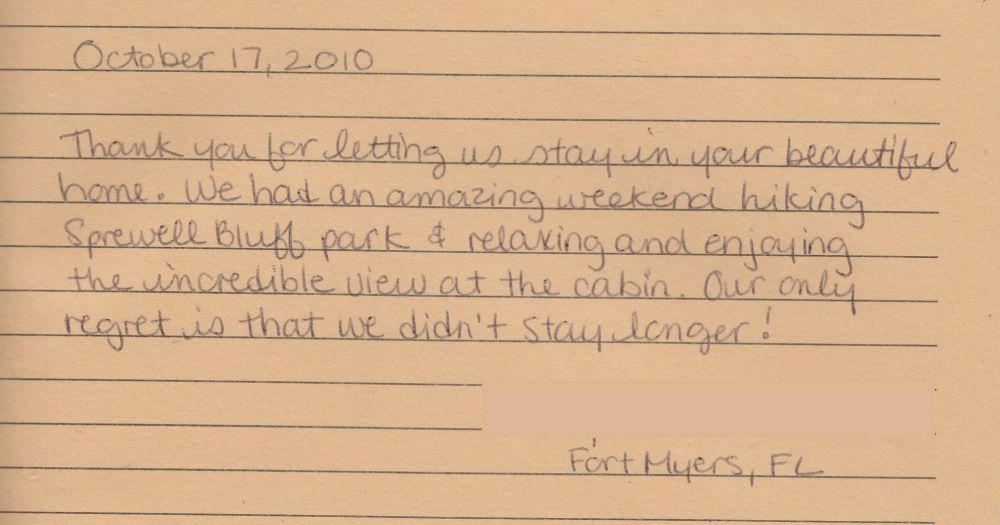 October 17, 2010
Thank you for letting us stay in your beautiful
home. We had an amazing weekend hiking
Sprewell Bluff park & relaxing and enjoying
the incredible view at the cabin. Our only
regret is that we didn't stay longer!
Fort Myers, FL